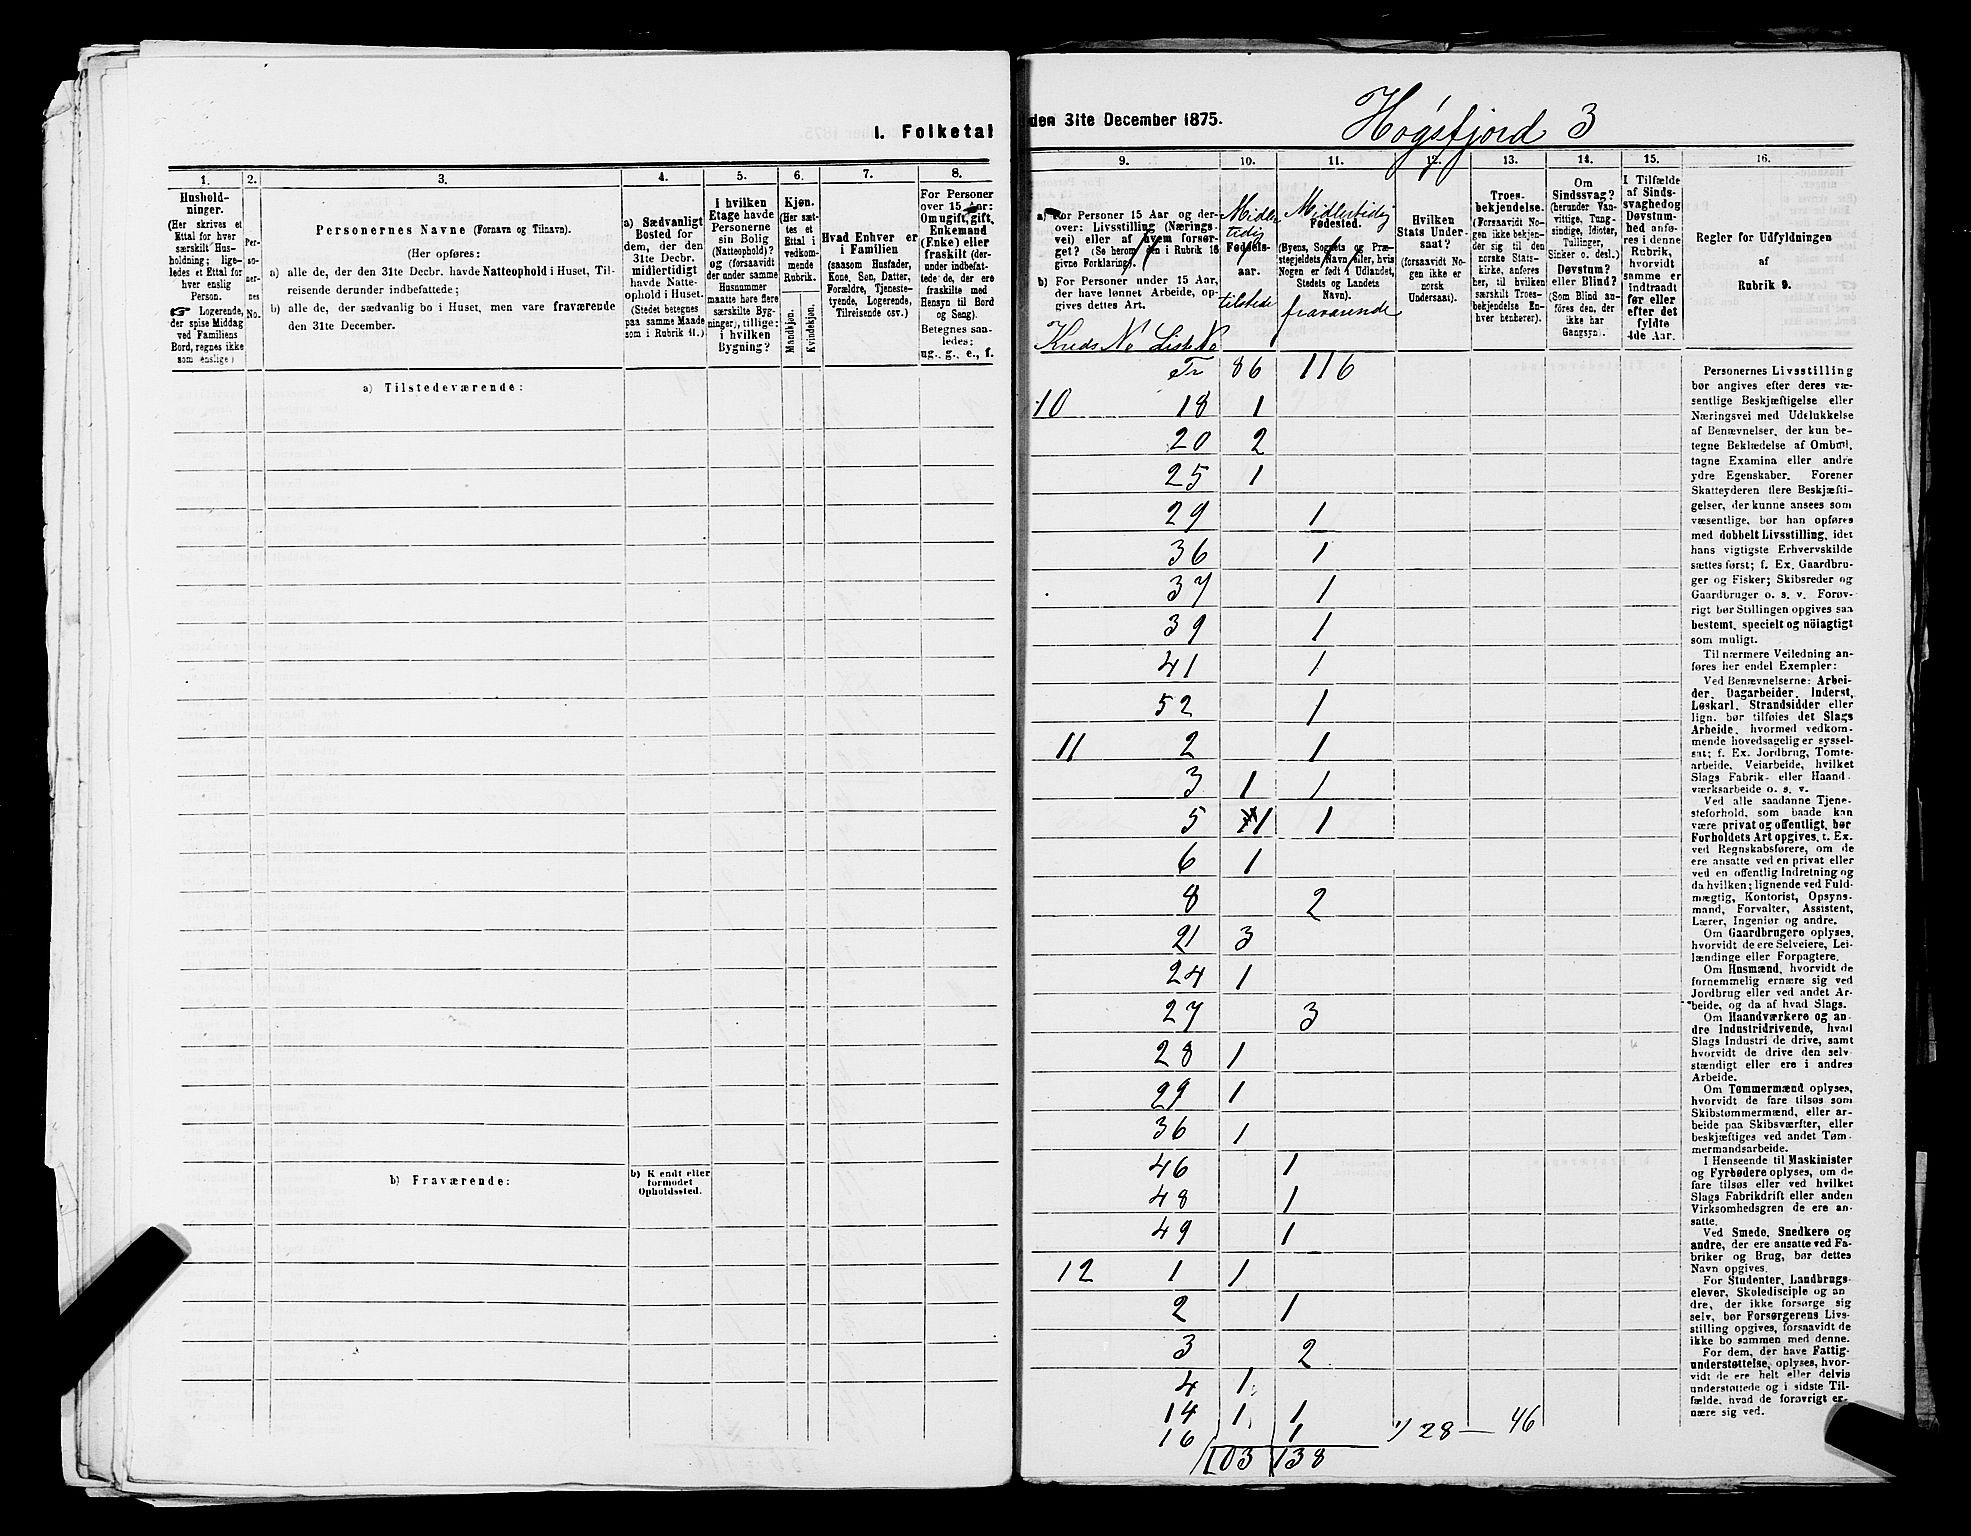 I. Folketal
1.
Hushold-
ninger.
(Her skrives et
Ettal for hver
særskilt Hus-
holdning; lige-
ledes et Ettal for
hver enslig
Person.
☞ Logerende,
der spise Middag
ved Familiens
Bord, regnes ikke
som enslige)
2.
Per-
so-
ner-
nes
No.
3.
Personernes Navne (Fornavn og Tilnavn).
(Her opføres:
a) alle de, der den 31te Decbr. havde Natteophold i Huset, Til-
reisende derunder indbefattede;
b) alle de, der sædvanlig bo i Huset, men vare fraværende
den 31te December.
4.
a) Sædvanligt
Bosted for
dem, der den
31te Decbr.
midlertidigt
havde Natte-
ophold i Huset.
(Stedet betegnes
paa samme Maade
som i Rubrik 11.)
5.
I hvilken
Etage havde
Personerne
sin Bolig
(Natteophold)?
og (forsaavidt
der under samme
Husnummer
maatte høre flere
særskilte Byg-
ninger), tillige:
i hvilken
Bygning?
6.
Kjøn.
(Her sæt-
tes et
Ettal i
vedkom-
mende
Rubrik.
Mandkjøn.
Kvindekjøn.
7.
Hvad Enhver er
i Familien
(saasom Husfader,
Kone, Søn, Datter,
Forældre, Tjeneste-
tyende, Logerende,
Tilreisende osv.)
8.
For Personer
over 15 Aar:
Om ugift, gift,
Enkemand
(Enke) eller
fraskilt (der-
under indbefat-
tede de, der ere
fraskilte med
Hensyn til Bord
og Seng).
Betegnes saa-
ledes:
ug., g., e., f.
a) Tilstedeværende:
b) Fraværende:
b) Kjendt eller
formodet
Opholdssted.
den 31te December 1875.
Høgsfjord 3
9.
a) For Personer 15 Aar og der-
over: Livsstilling (Nærings-
vei) eller af hvem forsør-
get? (Se herom den i Rubrik 16
givne Forklaring).
b) For Personer under 15 Aar,
der have lønnet Arbeide, op-
gives dettes Art.
Kreds No Liste No
10.
Midler
tidig
Fødsels-
aar.
tilstede
11.
Midlertidig
Fødested.
(Byens, Sognets og Præ-
stegjeldets Navn eller, hvis
Nogen er født i Udlandet,
Stedets og Landets
Navn).
fraværende
12.
Hvilken
Stats Under-
saat?
(forsaavidt No-
gen ikke er
norsk
Undersaat).
13.
Troes-
bekjendelse.
(Forsaavidt No-
gen ikke bekjen-
der sig til den
norske Stats-
kirke, anføres
her, til hvilken
særskilt Troes-
bekjendelse En-
hver henhører).
14.
Om
Sindssvag?
(herunder Van-
vittige, Tung-
sindige, Idioter,
Tullinger,
Sinker o. desl.)
Døvstum?
eller Blind?
(Som Blind an-
føres den, der
ikke har
Gangsyn).
15.
I Tilfælde
af Sinds-
svaghed og
Døvstum-
hed anfø-
res i denne
Rubrik,
hvorvidt
samme er
indtraadt
før eller
efter det
fyldte
4de Aar.
16.
Regler for Udfyldningen
af
Rubrik 9.
Tr 86 116
10 18 1
20 2
25 1
29 1
36 1
37 1
39 1
41 1
52 1
11 2 1
3 1 1
5 1 1
6 1
8 2
21 3
24 1
27 3
28 1
29 1
36 1
46 1
48 1
49 1
12 1 1
2 1
3 2
4 1
14 1 1
16 1 28 — 46
103 138
Personernes Livsstilling
bør angives efter deres væ-
sentlige Beskjæftigelse eller
Næringsvei med Udelukkelse
af Benævnelser, der kun be-
tegne Beklædelse af Ombud,
tagne Examina eller andre
ydre Egenskaber. Forener
Skatteyderen flere Beskjæfti-
gelser, der kunne ansees som
væsentlige, bør han opføres
med dobbelt Livsstilling, idet
hans vigtigste Erhvervskilde
sættes først; f. Ex. Gaardbru-
ger og Fisker; Skibsreder og
Gaardbruger o. s. v. Forøv-
rigt bør Stillingen opgives saa
bestemt, specielt og nöiagtigt
som muligt.
Til nærmere Veiledning an-
føres her endel Exempler:
Ved Benævnelserne: Arbei-
der, Dagarbeider, Inderst,
Løskarl, Strandsidder eller
lign. bør tilføies det Slags
Arbeide, hvormed vedkom-
mende hovedsagelig er syssel-
sat; f. Ex. Jordbrug, Tomte-
arbeide, Veiarbeide, hvilket
Slags Fabrik- eller Haand-
værksarbeide o. s. v.
Ved alle saadanne Tjene-
steforhold, som baade kan
være privat og offentligt, bør
Forholdets Art opgives, t. Ex.
ved Regnskabsførere, om de
ere ansatte ved en privat eller
ved en offentlig Indretning og
da hvilken; lignende ved Fuld-
mægtig, Kontorist, Opsyns-
mand, Forvalter, Assistent,
Lærer, Ingeniør og andre.
Om Gaardbrugere oplyses,
hvorvidt de ere Selveiere, Lei-
lændinge eller Forpagtere.
Om Husmænd, hvorvidt de
fornemmelig ernære sig ved
Jordbrug eller ved andet Ar-
beide, og da af hvad Slags.
Om Haandværkere og an-
dre Industridrivende, hvad
Slags Industri de drive, samt
hvorvidt de drive den selv-
stændigt eller ere i andres
Arbeide.
Om Tømmermænd oplyses,
hvorvidt de fare tilsøs som
Skibstømmermænd, eller ar-
beide paa Skibsværfter, eller
beskjæftiges ved andet Tøm-
mermandsarbeide.
I Henseende til Maskinister
og Fyrbødere oplyses, om de
fare tilsøs eller ved hvilket
Slags Fabrikdrift eller anden
Virksomhedsgren de ere an-
satte.
Ved Smede, Snedkere og
andre, der ere ansatte ved Fa-
briker og Brug, bør dettes
Navn opgives.
For Studenter, Landbrugs-
elever, Skoledisciple og an-
dre, der ikke forsørge sig
selv, bør Forsørgerens Livs-
stilling opgives, forsaavidt de
ikke bo sammen med denne.
For dem, der have Fattig-
understøttelse, oplyses, hvor-
vidt de ere helt eller delvis
understøttede og i sidste Til-
fælde, hvad de forøvrigt er-
nære sig ved.